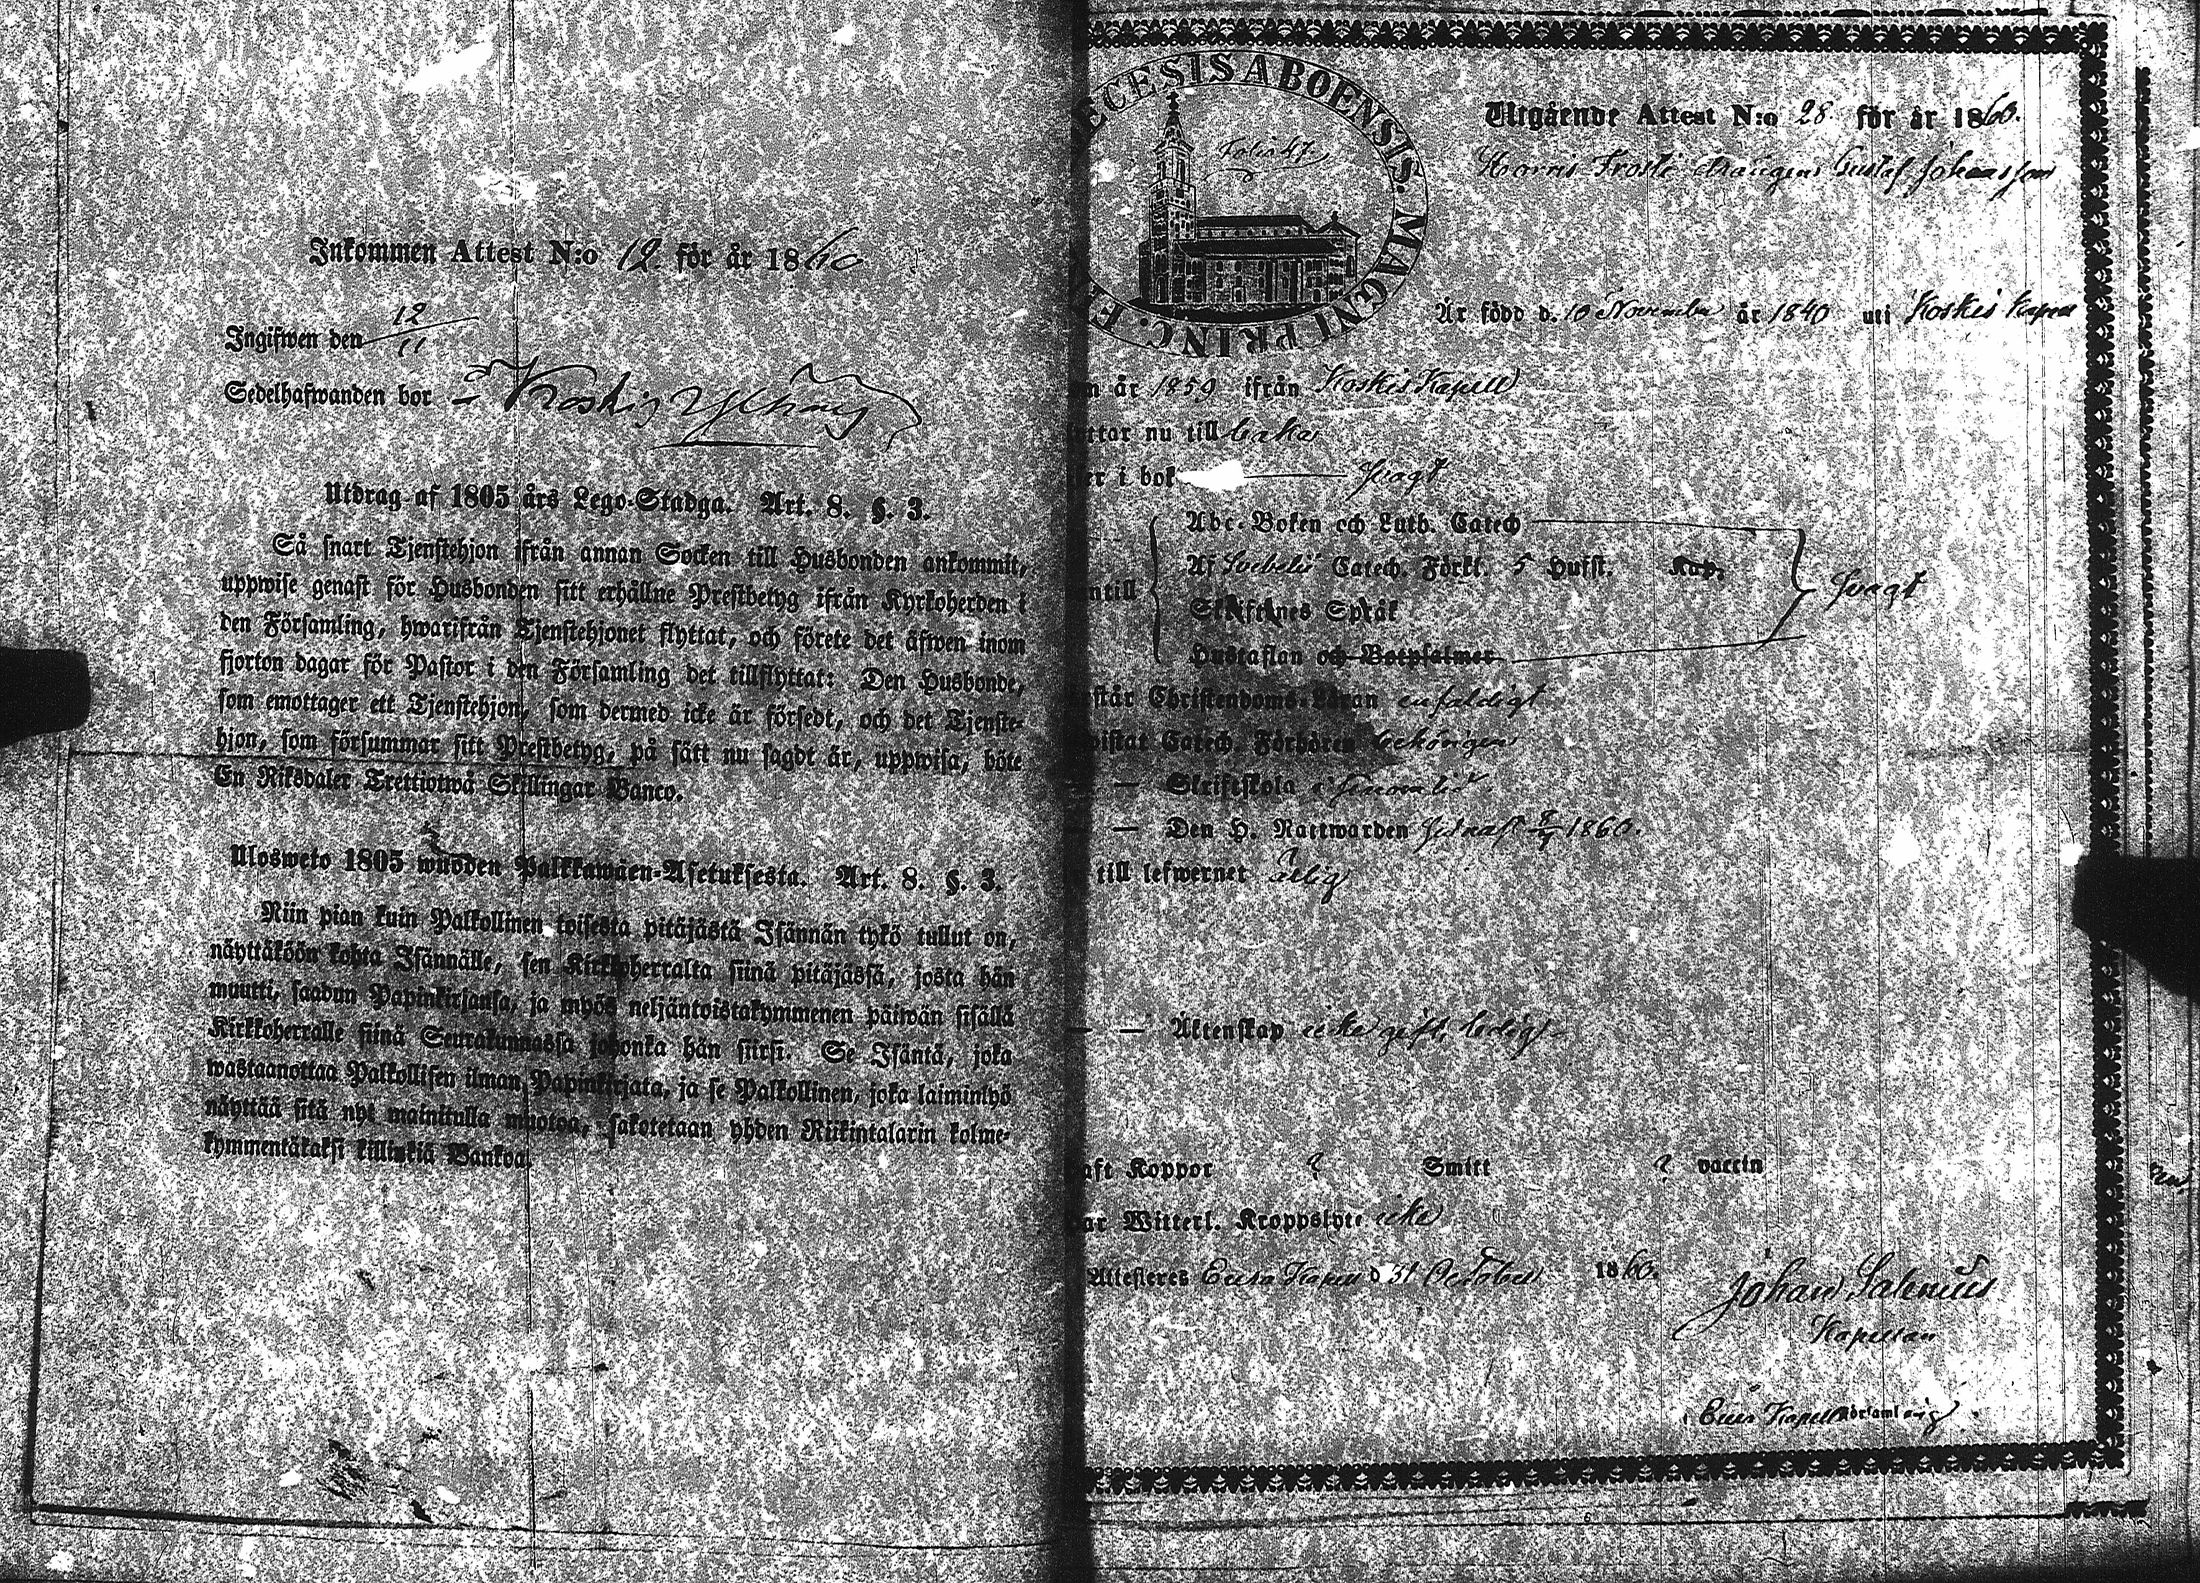 Inkommen Attest N:o 12 för år 1860
Ingifwen den 12/11
Sedelhafwanden bor Koskis
Utdrag af 1805 års Lego-Stadga. Art. 8. §. 3.
Så snart Tjenstehjon ifrån annan Socken till Husbonden ankommit,
uppwise genast för Husbonden sitt erhållne Prestbetyg ifrån Kyrkoherden i
den Församling, hwarifrån Tjenstehjonet flyttat, och förete det äfwen inom
fjorton dagar för Pastor i den Församling det tillflyttat: Den Husbonde,
som emottager ett Tjenstehjon, som dermed icke är försedt, och det Tjenste-
hjon, som försummar sitt Prestbetyg, på sätt nu sagdt är, uppwisa, böte
En Riksdaler Trettiotwå Skillingar Banco.
Ulosweto 1805 wuoden Palkkawäen-Asetuksesta. Art. 8. §. 3.
Niin pian kuin Palkollinen toisesta pitäjästä Isännän tykö tullut on,
näyttäköön kohta Isännälle, sen Kirkkoherralta siinä pitäjässä, josta hän
muutti, saadun Papinkirjansa, ja myös neljäntoistakymmenen päiwän sisällä
Kirkkoherralle siinä Seurakunnassa johonka hän siirsi. Se Isäntä, joka
wastaanottaa Palkollisen ilman Papinkirjata, ja se Palkollinen, joka laiminlyö
näyttää sitä nyt mainitulla muotoa, sakotetaan yhden Riikintalarin kolme-
kymmentäkaksi killinkiä Bankoa.
ECESIS ABOENSIS. MAGNI PRINC. F
Folio 47
Utgående Attest N:o 28 för år 1860.
Horris Frosti drängen Gustaf Johansson
Är född d. 10 November år 1840 uti Koskis Kapell
n år 1859 ifrån Koskis Kapell
ttar nu till baka
er i bok svagt
Abc-Boken och Luth. Catech
Af Svebelii Catech. Förkl. 5 Hufst. Kap.
ntill
Skriftenes Språk
svagt
Hustaflan och Botpsalmer
står Christendoms-Läran enfaldigt
istat Catech. Förhören behörigen
— Skriftskola
— Den H. Nattwarden senast 8/7 1860.
till lefwernet ärlig
— — Äktenskap icke gift, ledig
aft Koppor ? Smitt ? vaccin
ar Witterl. Kroppslyte icke
Attesteres Eura Kapell d 31 October 1860.
Johan Salenius
Kapellan
i Eura Kapell församling